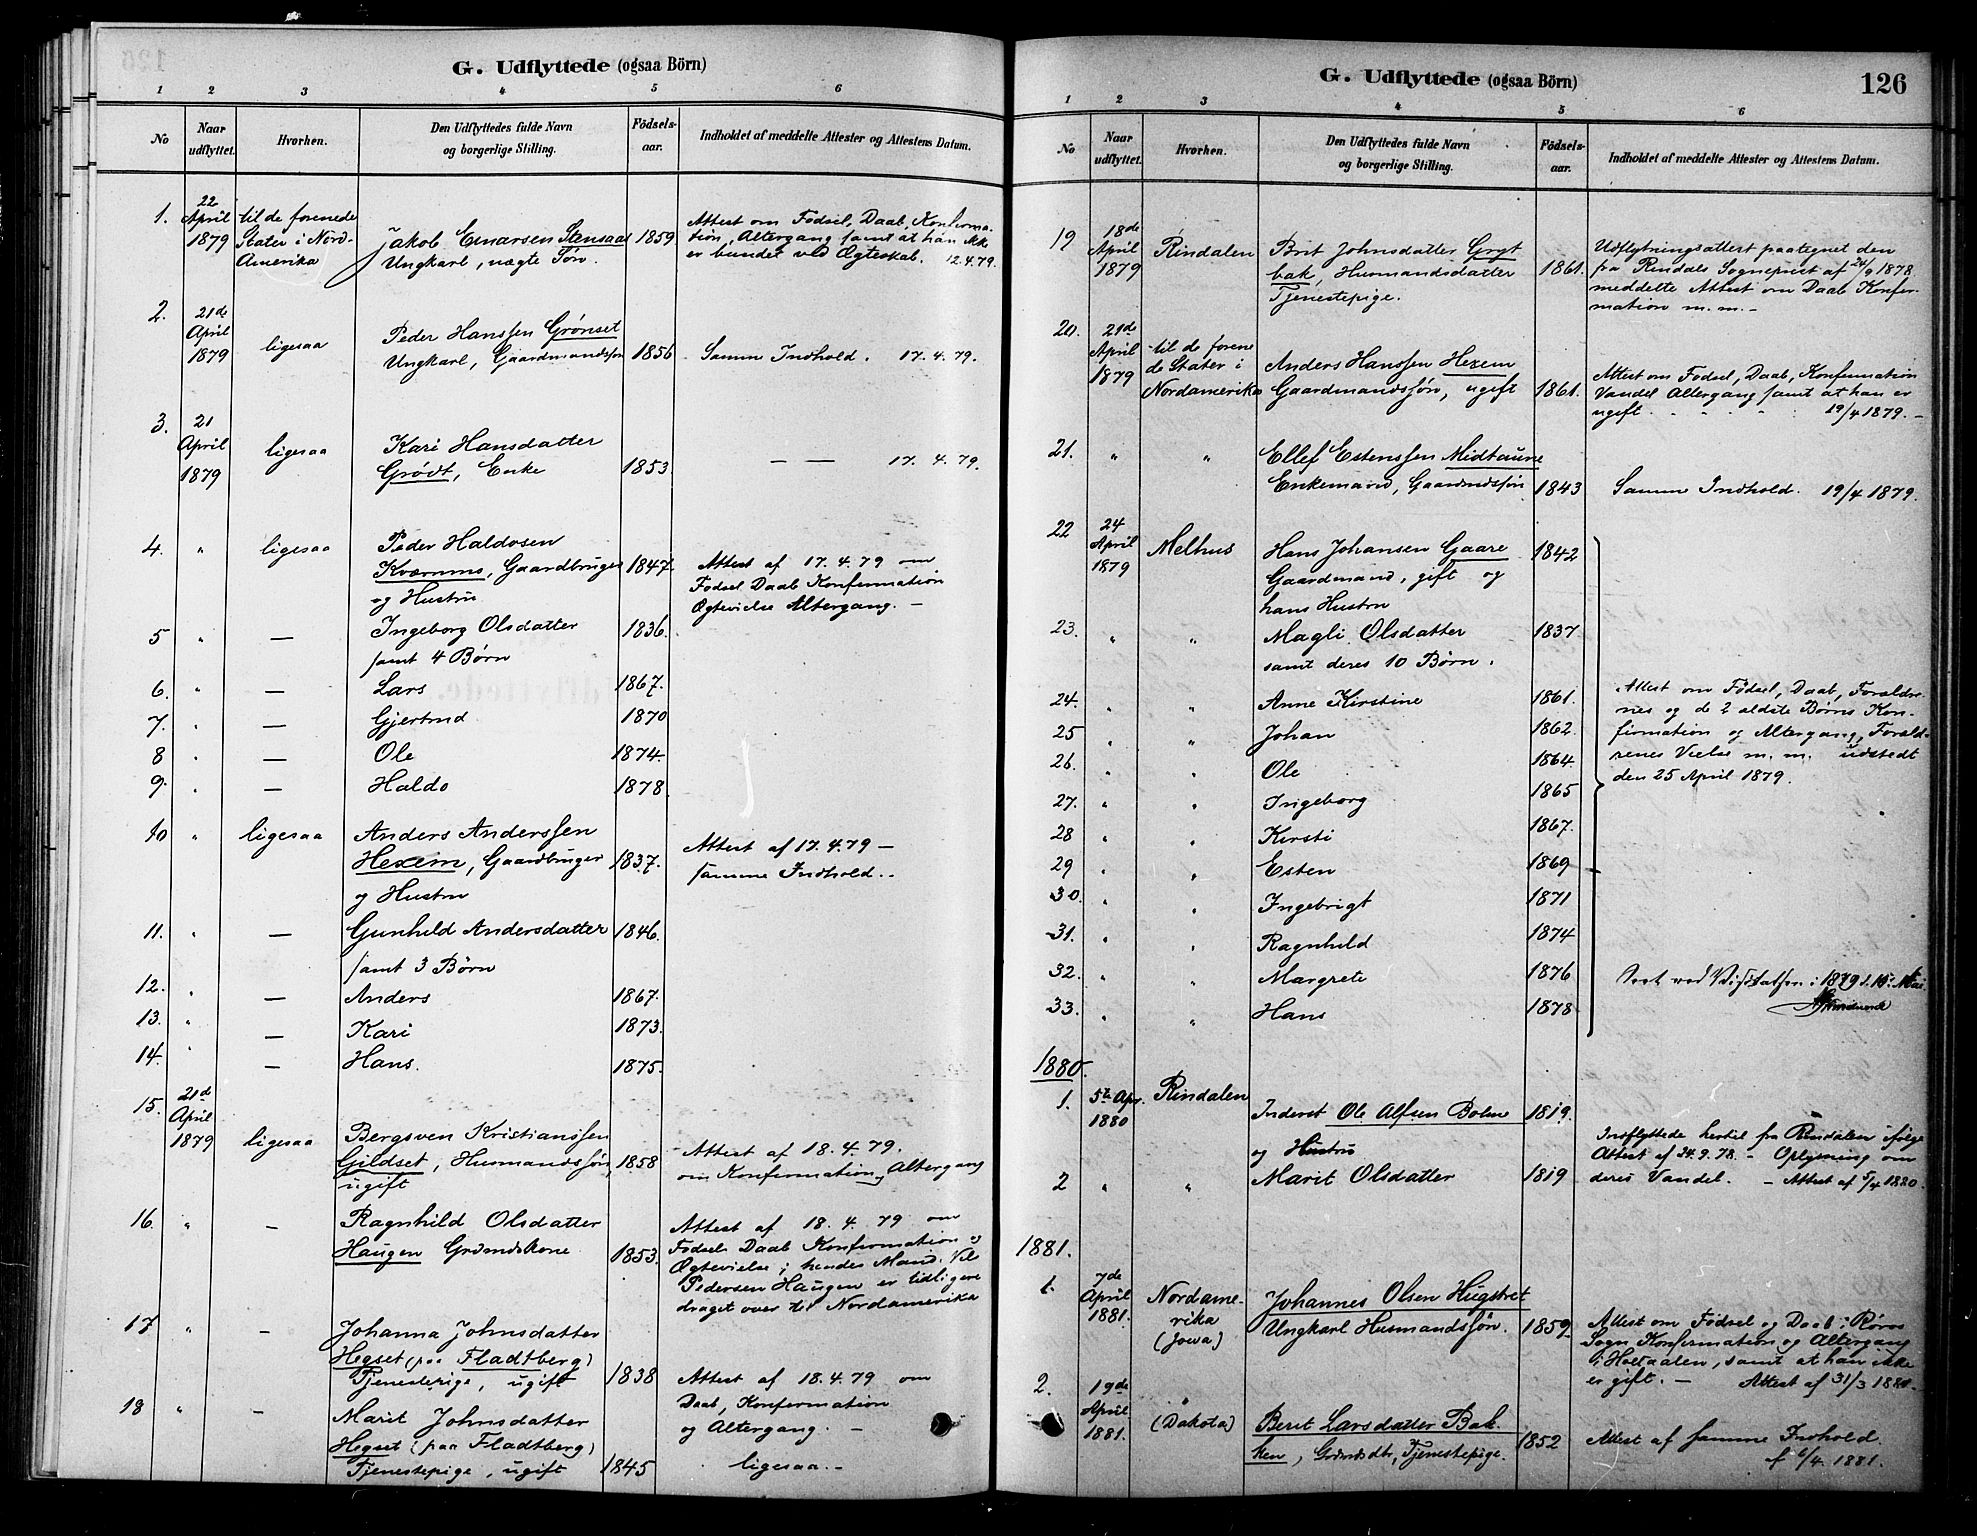 G. Udflyttede (ogsaa Börn)
1 2 3 4 5 6
No
Naar udflyttet.
Hvorhen.
Den Udflyttedes fulde Navn
og borgerlige Stilling.
Födsels-
aar.
Indholdet af meddelte Attester og Attestens Datum.
1. 22 April 1879 til de forenede Stater i Nord-Amerika
Jakob Einarsen Stensaas 1859
Ungkarl, uægte Søn.
Attest om Fødsel, Daab, Konfirma-
tion, Altergang samt at han ikke
er bundet ved Ægteskab. 12.4.79.
2. 21de April 1879 ligesaa
Peder Hanssen Grønset
Ungkarl, Gaardmandssøn 1856 Samme Indhold. 17.4.79.
3. 21 April 1879 ligesaa
Kari Hansdatter
Grødt, Enke 1853 — — 17.4.79.
4. " ligesaa
Peder Haldosen
Kværnms, Gaardbruger 1847.
og Hustru
Attest af 17.4.79 om
Fødsel Daab Konfirmation
Ægtevielse Altergang. —
5 " — Ingeborg Olsdatter 1836.
samt 4 Børn
6. " — Lars 1867.
7. " — Gjertrud 1870
8 " — Ole 1874.
9. " — Haldo 1878.
10 " ligesaa
Anders Anderssen
Hexem, Gaardbruger 1837.
og Hustru
Attest af 17.4.79 —
samme Indhold..
11. " — Gunhild Andersdatter 1846.
samt 3 Børn
12. " — Anders 1867.
13. " — Kari 1873.
14. " — Hans. 1875.
15. 21de April 1879 ligesaa
Bergsven Kristianssen
Gildset, Husmandssøn, 1858
ugift
Attest af 18.4.79.
om Konfirmation og Altergang
16. " — Ragnhild Olsdatter
Haugen Grdmdskone 1853.
Attest af 18.4.79 om
Fødsel Daab Konfirmation og
Ægtevielse; hendes Mand
Pedersen Haugen er tidligere
draget over til Nordamerika
17 " — Johanna Johnsdatter
Hegset (paa Fladtberg)
Tjenestepige, ugift 1838 Attest af 18.4.79 om
Daab, Konfirmation
og Altergang. —
18 " — Marit Johnsdatter
Hegset (paa Fladtberg)
Tjenestepige, ugift 1845 ligesaa.—
G. Udflyttede (ogsaa Börn)
126
1 2 3 4 5 6
No
Naar udflyttet.
Hvorhen.
Den Udflyttedes fulde Navn
og borgerlige Stilling.
Födsels-
aar.
Indholdet af meddelte Attester og Attestens Datum.
19 18de April 1879 Rindalen
Brit Johnsdatter Gryt
bak, Husmandsdatter 1861.
Tjenestepige.
Udflytningsattest paategnet den
fra Rindals Sogneprest af 24/9 1878
meddelte Attest om Daab Konfir-
mation m. m. —
20. 21de April 1879 til de forene de Stater i Nordamerika
Anders Hanssen Hexem
Gaardmandssøn, ugift 1861.
Attest om Fødsel, Daab, Konfirmation
Vandel Altergang samt at han er
ugift 19/4 1879. —
21. " " Ellef Estenssen Midtaune
Enkemand, Gaardmdssøn 1843 Samme Indhold. 19/4 1879.
22 24 April 1879 Melhus
Hans Johansen Gaare 1842
Gaardmand, gift og
hans Hustru
23. " " Magli Olsdatter 1837
samt deres 10 Børn.
24. " " Anne Kirstine 1861.
25 " " Johan 1862.
26. " " Ole 1864.
27. " " Ingeborg 1865
28 " " Kirsti 1867.
29 " " Esten 1869
30. " " Ingebrigt 1871
31. " " Ragnhild 1874
32. " " Margrete 1876
33. " " Hans 1878
Attest om Fødsel, Daab, Forældre-
nes og de 2 ældste Børns Kon-
firmation og Altergang, Foræld-
renes Vielse m. m. udstedt
den 25 April 1879.
1880.
1. 5te Apr. 1880 Rindalen
Inderst Ole Alfsen Bolme 1819.
og Hustru
2 " " Marit Olsdatter 1819
Indflyttede hertil fra Rindalen ifølge
Attest af 24.9.78. — Oplysning om
deres Vandel. — Attest af 5/4 1880.
1881.
1. 7de April 1881. Nordame-
rika
(Jowa)
Johannes Olsen Hugstret
Ungkarl Husmandssøn. 1859.
Attest om Fødsel og Daab i Røros
Sogn Konfirmation og Altergang
i Holtaalen, samt at han ikke
er gift. — Attest af 31/3 1881.
2. 19de April 1881. "
(Dakota)
Berit Larsdatter Bak
ken, Grdmdsdtr, Tjenestepige. 1852
Attest af samme Indhold
af 6/4 1881.